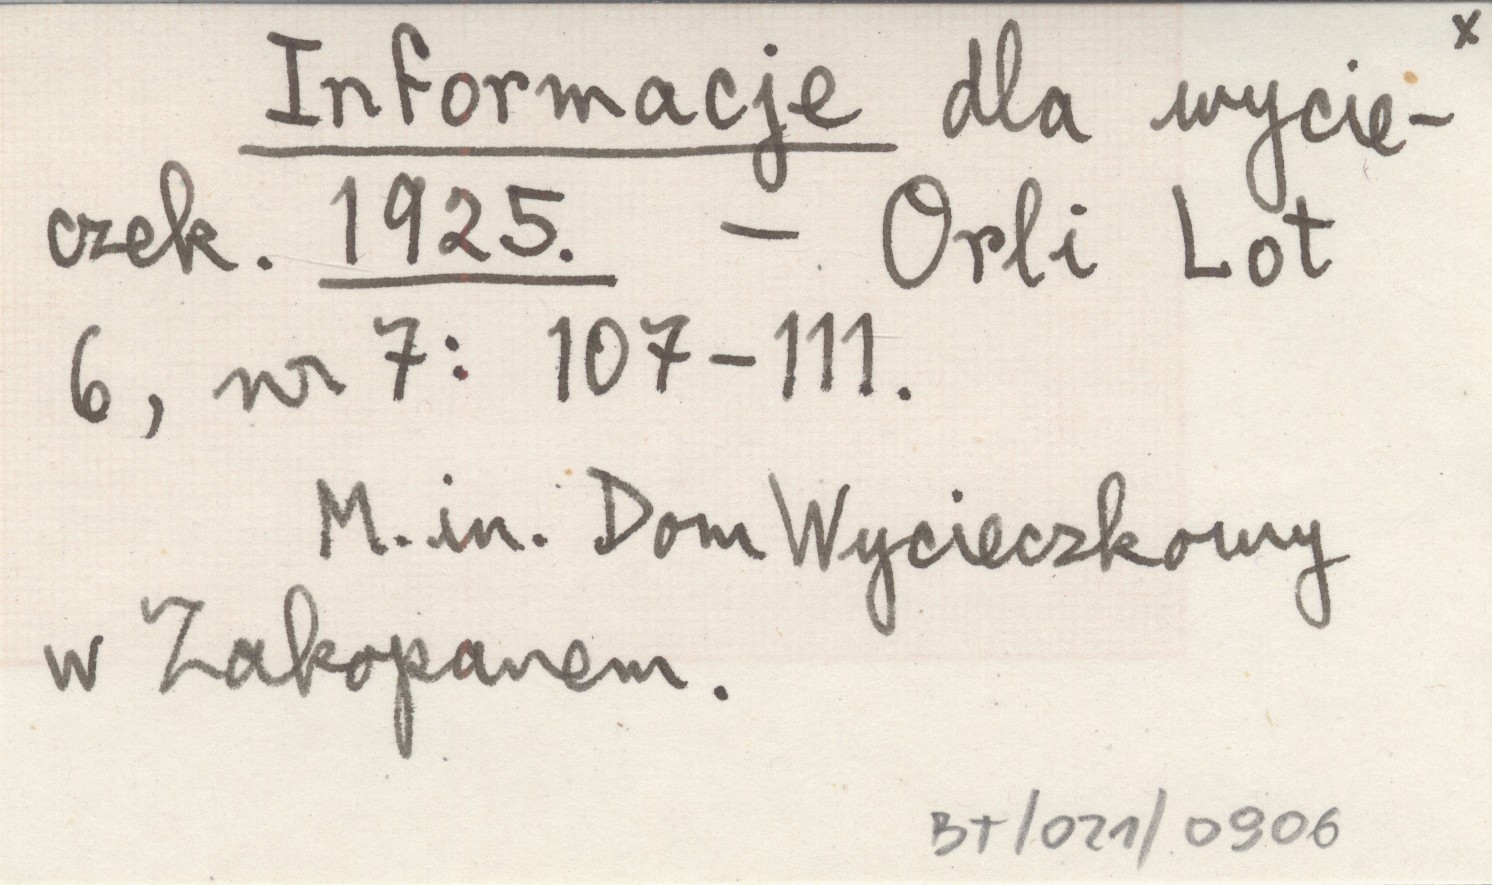 x
Informacje dla wycie-
czek. 1925. – Orli Lot
6, nr 7: 107-111.
M.in. Dom Wycieczkowy
w Zakopanem.
BT/021/0906